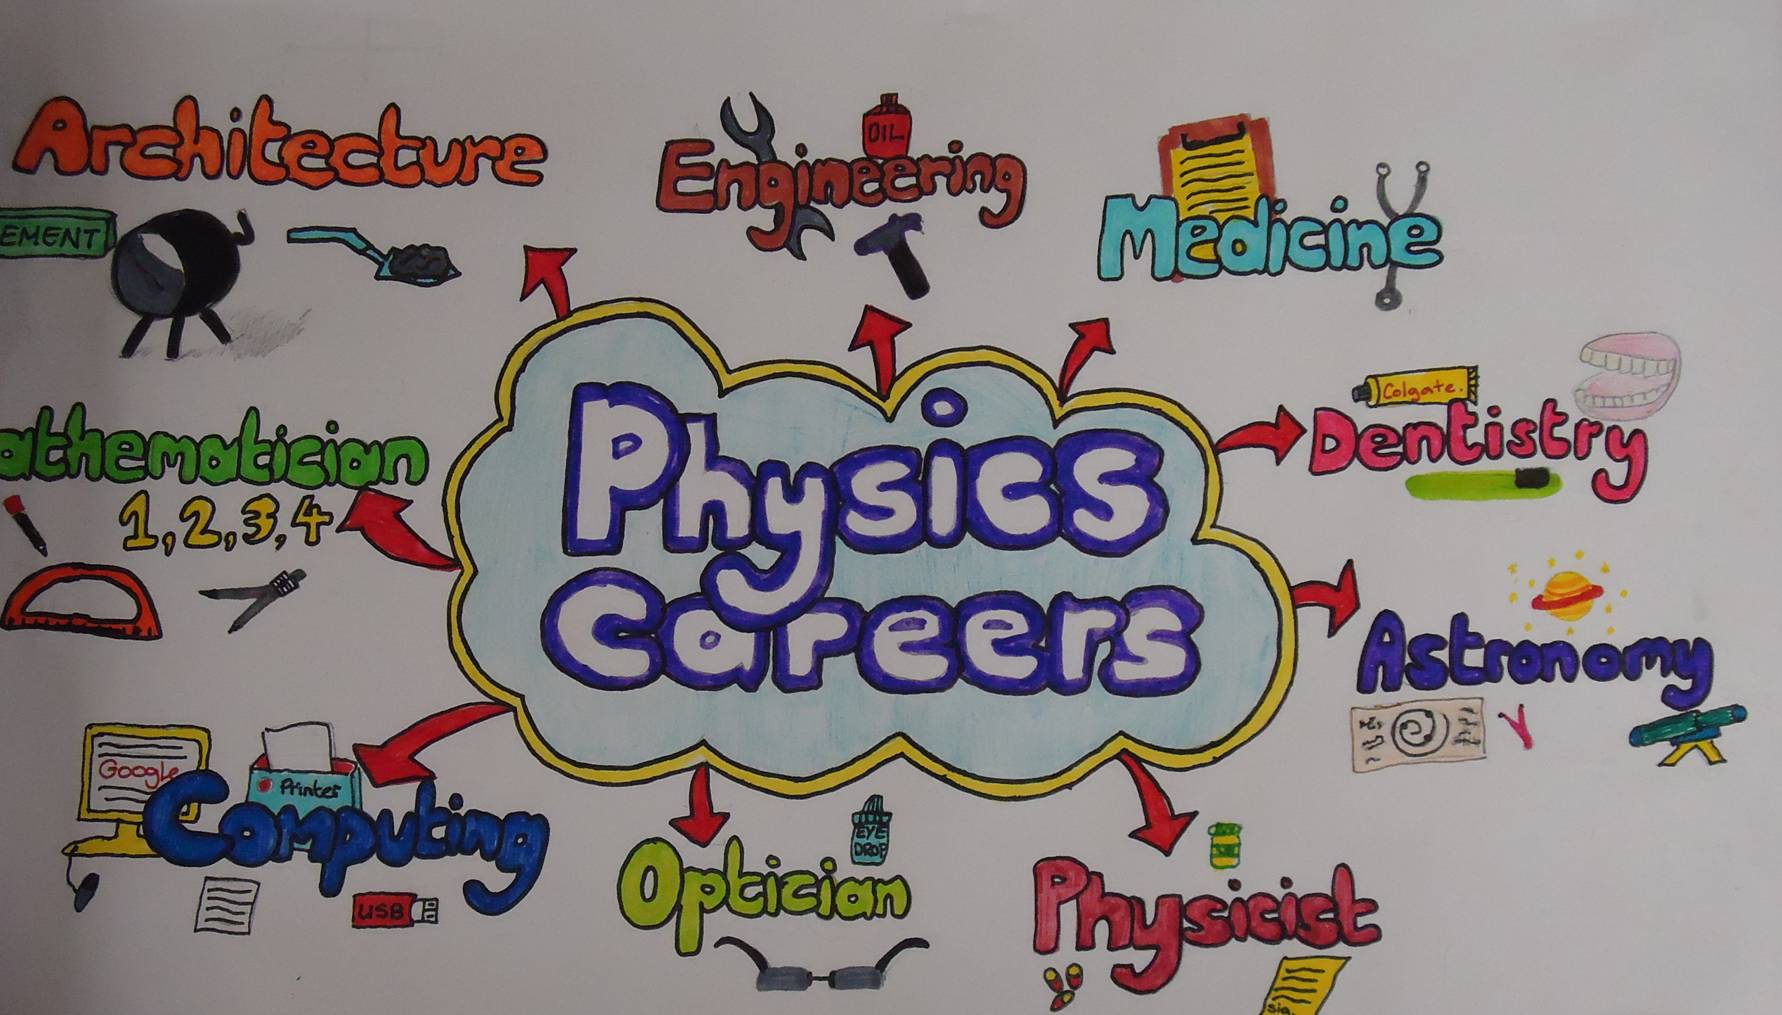 Architecture
EMENT
Engineering
OIL
Medicine
Colgate.
Dentistry
athematician
1,2,3,4
Physics
Careers
Astronomy
Google
Printer
Computing
USB
EYE
DROP
Optician
Physicist
Sig.